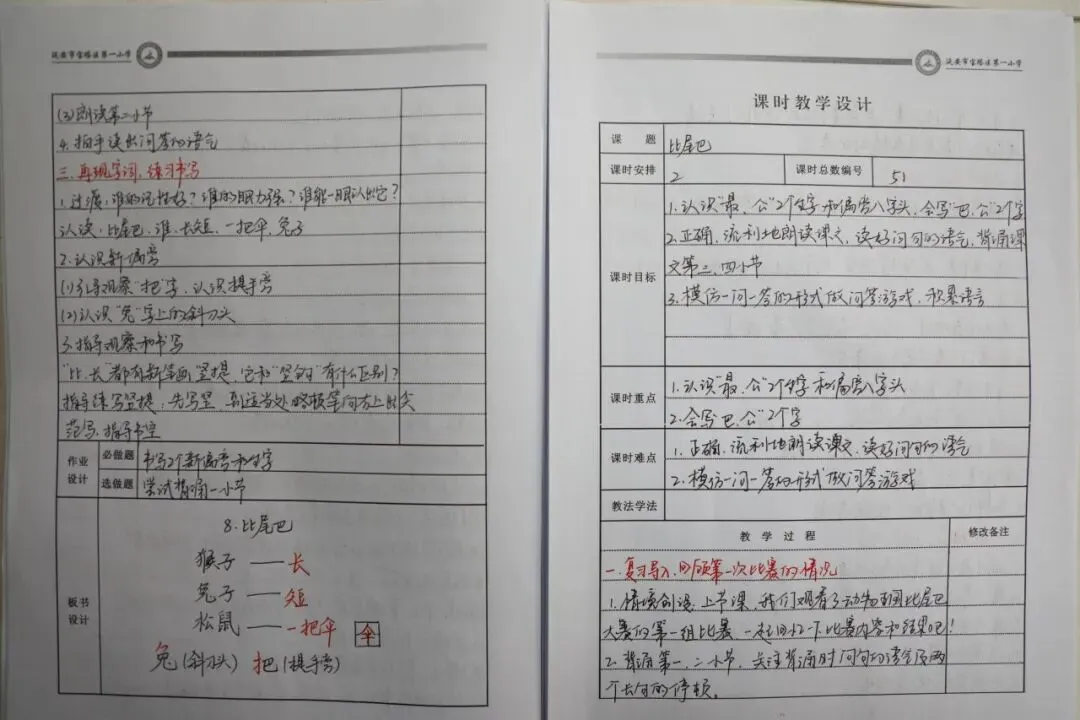 延安市宝塔区第一小学
(3)朗读第二小节
4.拍手读出问答的语气
三、再现字词,练习书写
1.过渡:谁的记性好?谁的眼力强?谁能一眼认出它?
认读:比尾巴、谁、长短、一把伞、兔子
2.认识新偏旁
(1)引导观察"把"字,认识提手旁
(2)认识"兔"字上的斜刀头
3.指导观察和书写
"比、长"都有新笔画"竖提",它和"竖钩"有什么区别?
指导练写竖提:先写竖,到适当处略顿笔向右上
范写,指导书空
作业设计 必做题 书写2个新偏旁和生字
选做题 尝试背诵一小节
板书设计
8.比尾巴
猴子——长
兔子——短
松鼠——一把伞 伞
兔(斜刀头) 把(提手旁)
延安市宝塔区第一小学
课时教学设计
课题 比尾巴
课时安排 2 课时总数编号 51
课时目标
1.认识"最、公"2个生字和偏旁八字头,会写"巴、公"2个字
2.正确、流利地朗读课文,读好问句的语气,背诵课
文第三、四小节
3.模仿一问一答的形式做问答游戏,积累语言
课时重点
1.认识"最、公"2个生字和偏旁八字头
2.会写"巴、公"2个字
课时难点
1.正确、流利地朗读课文,读好问句的语气
2.模仿一问一答的形式做问答游戏
教法学法
教学过程 修改备注
一、复习导入,回顾第一次比赛的情况
1.情境创设:上节课,我们观看了动物王国比尾巴
大赛的第一组比赛,一起回忆一下比赛内容和结果吧!
2.背诵第一、二小节,关注背诵时问句的语气及两
个长句的停顿。